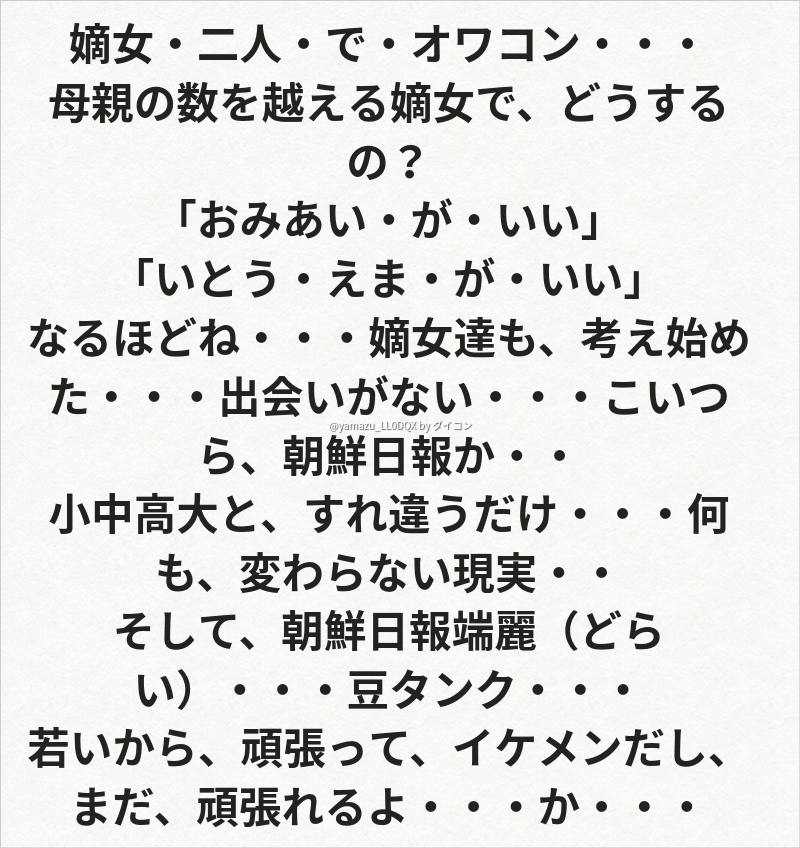 嫡女・二人・で・オワコン・・・
母親の数を越える嫡女で、どうする
の？
「おみあい・が・いい」
「いとう・えま・が・いい」
なるほどね・・・嫡女達も、考え始め
た・・・出会いがない・・・こいつ
@yamazu_LL0DQX by ダイコン
ら、朝鮮日報か・・
小中高大と、すれ違うだけ・・・何
も、変わらない現実・・
そして、朝鮮日報端麗（どら
い）・・・豆タンク・・・
若いから、頑張って、イケメンだし、
まだ、頑張れるよ・・・か・・・